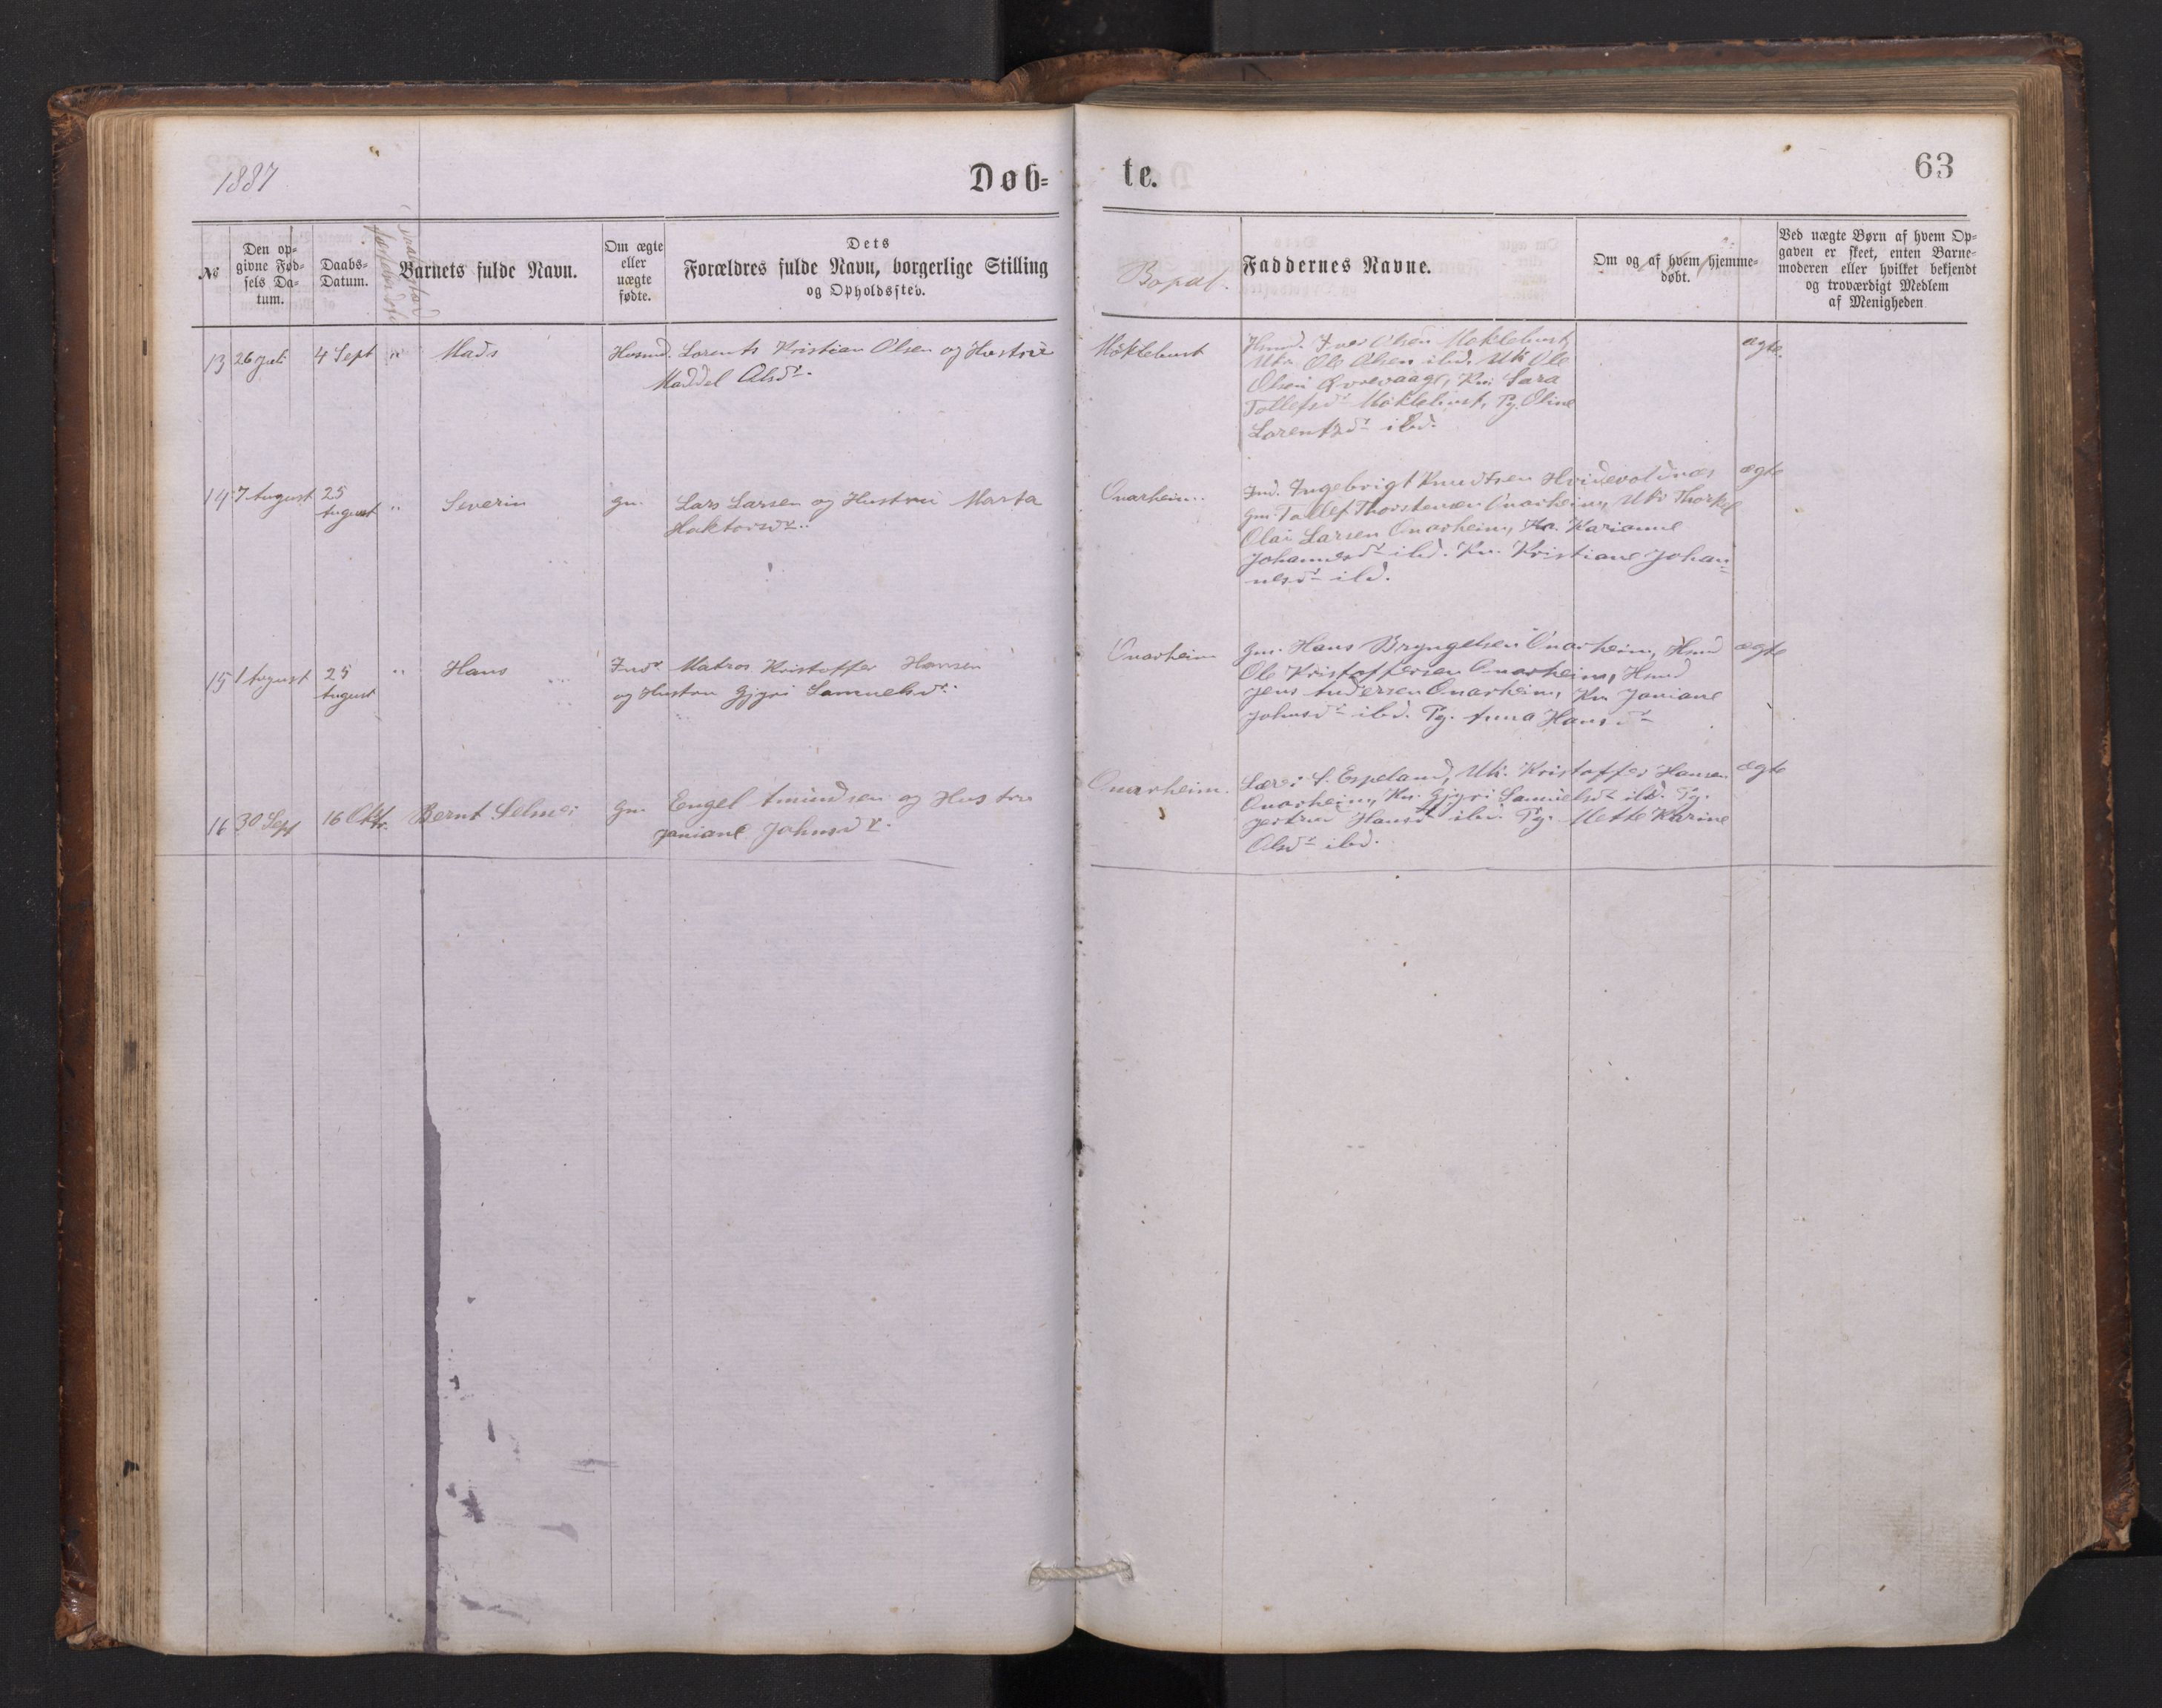 1887
Døb=
te.
63
No
Den op=
givne Fød=
sels Da=
tum.
Daabs=
Datum.
Barnets fulde Navn.
Om ægte
eller
uægte
fødte.
Dets
Forældres fulde Navn, borgerlige Stilling
og Opholdssted.
Bopæl.
Faddernes Navne.
Om og af hvem hjemme=
døbt.
Ved uægte Børn af hvem Op=
gaven er skeet, enten Barne=
moderen eller hvilket bekjendt
og troværdigt Medlem
af Menigheden.
13 26 Juli 4 Sept " Mads Husmd. Lorents Kristian Olsen og Hustru
Maddel Olsdr.
Möklebust
Husmd. Iver Olsen Möklebust,
Uk. Ole Olsen ibd. Uk Ole
Olsen Kvrevaage, Kn. Sara
Tollefsdr Möklebust, Pg. Oline
Lorentsdr ibd.
ægte.
14 7 August 25
August " Severin gm. Lars Larsen og Hustru Marta
Haktorsdr.
Onarheim.
Ind. Ingebrigt Knudtsen Hvidevoldnæs
gm. Tollef Thorstensen Onarheim, Uk. Thorkel
Olai Larsen Onarheim, Ka. Karianne
Johannesdr ibd. Kn. Kristiane Johan=
nesdr ibd.
ægte
15 1 August 25
August " Hans Indr Matros Kristoffer Hansen
og Hustru Gjyri Samuelsdr.
Onarheim
gm. Hans Bryngelsen Onarheim, Husmd
Ole Kristoffersen Onarheim, Husmd
Jens Andersen Onarheim, Kn. Janiane
Johnsdr ibd. Pg. Anna Hansdr
ægte
16 30 Sept 16 Oktr. Bernt Selmer gm. Engel Amundsen og Hustru
Janiane Johnsdr.
Onarheim.
Lærer A. Espeland, Uk. Kristoffer Hansen
Onarheim, Kn. Gjyri Samuelsdr ibd. Pg.
Jertrud Hansdr ibd. Pg. Mette Karine
Olsdr ibd.
ægte